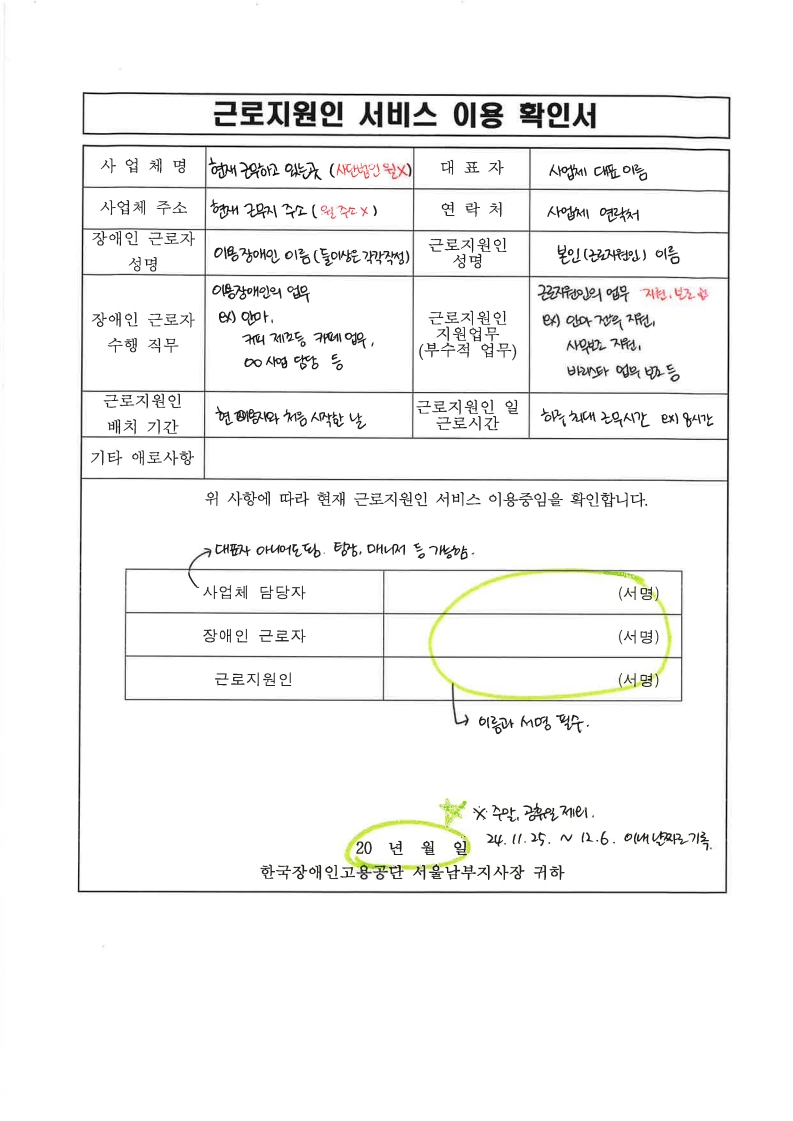 근로지원인 서비스 이용 확인서
사 업 체 명 현재 근무하고 있는곳 (사단법인 월X) 대 표 자 사업체 대표 이름
사업체 주소 현재 근무지 주소 (월 주소 X) 연 락 처 사업체 연락처
장애인 근로자
성명
이용장애인 이름 (둘이상은 각각작성)
근로지원인
성명
본인 (근로지원인) 이름
장애인 근로자
수행 직무
이용장애인의 업무
ex) 안마,
커피 제조등 카페 업무,
○○ 사업 담당 등
근로지원인
지원업무
(부수적 업무)
근로지원인의 업무 지원, 보조
ex) 안마 지원,
사무보조 지원,
바리스타 업무 보조 등
근로지원인
배치 기간
현 이용자와 처음 시작한 날
근로지원인 일
근로시간
하루 최대 근무시간 ex) 8시간
기타 애로사항
위 사항에 따라 현재 근로지원인 서비스 이용중임을 확인합니다.
대표자 아니어도 됨. 팀장, 매니저 등 가능함.
사업체 담당자 (서명)
장애인 근로자 (서명)
근로지원인 (서명)
이름과 서명 필수.
※ 주말, 공휴일 제외.
24. 11. 25. ~ 12. 6. 이내 날짜로 기록.
20 년 월 일
한국장애인고용공단 서울남부지사장 귀하